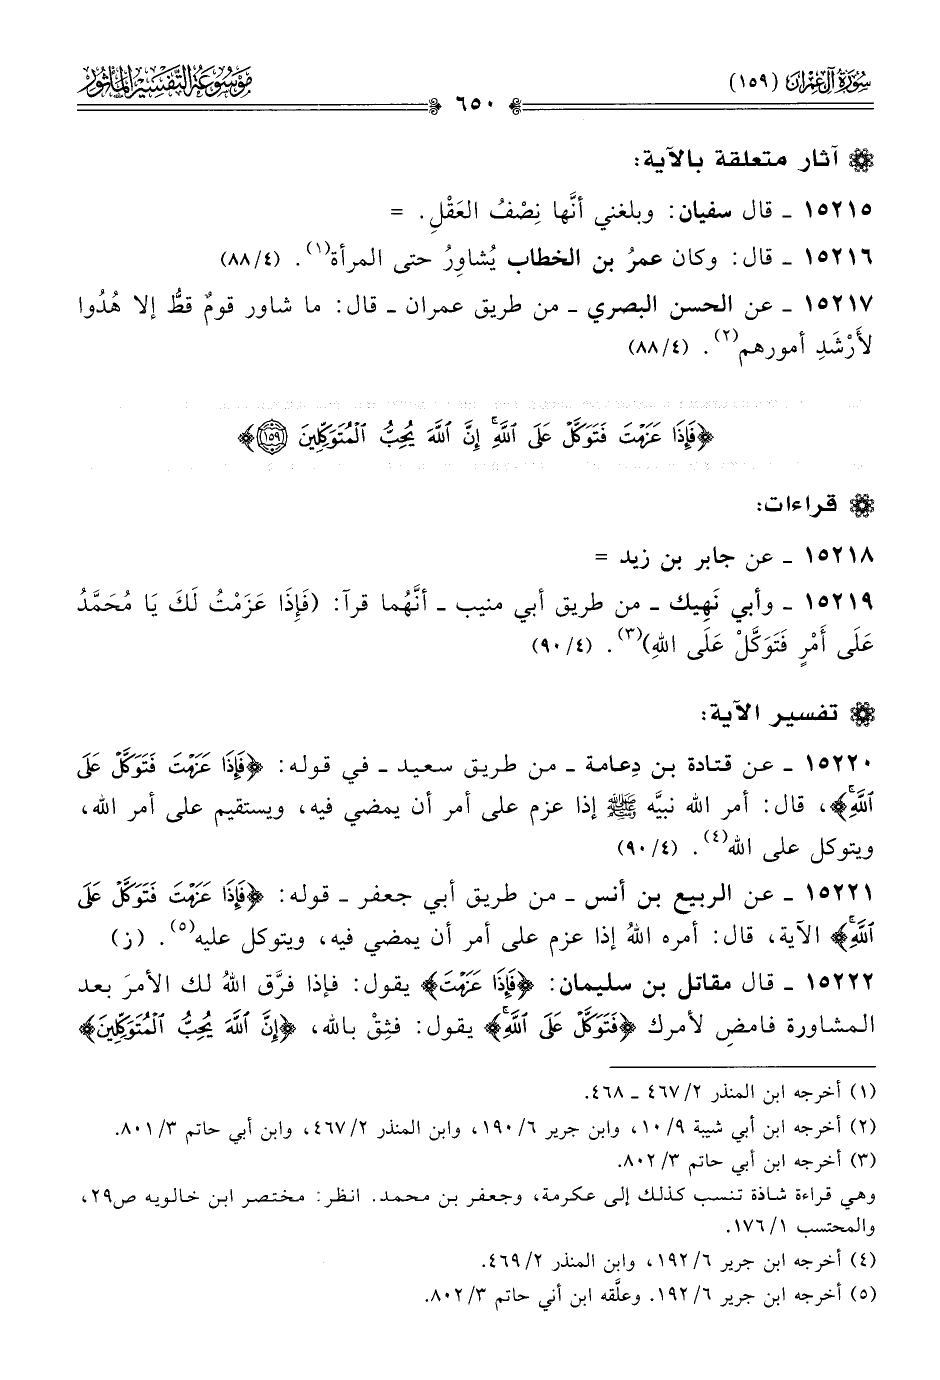 سُورَةُ آلِ عِمْرَانَ (١٥٩)
مَوْسُوعَةُ التَّفْسِيرِ المَأْثُورِ
٦٥٠
آثار متعلقة بالآية:
١٥٢١٥ ـ قال سفيان: وبلغني أنَّها نِصْفُ العَقْلِ. =
١٥٢١٦ ـ قال: وكان عمرُ بن الخطاب يُشاوِرُ حتى المرأة(١). (٨٨/٤)
١٥٢١٧ ـ عن الحسن البصري ـ من طريق عمران ـ قال: ما شاور قومٌ قطُّ إلا هُدُوا
لأَرْشَدِ أمورهم(٢). (٨٨/٤)
﴿فَإِذَا عَزَمْتَ فَتَوَكَّلْ عَلَى ٱللَّهِۚ إِنَّ ٱللَّهَ يُحِبُّ ٱلْمُتَوَكِّلِينَ ١٥٩﴾
قراءات:
١٥٢١٨ ـ عن جابر بن زيد =
١٥٢١٩ ـ وأبي نَهِيك ـ من طريق أبي منيب ـ أنَّهُما قرآ: (فَإِذَا عَزَمْتُ لَكَ يَا مُحَمَّدُ
عَلَى أَمْرٍ فَتَوَكَّلْ عَلَى اللهِ)(٣). (٩٠/٤)
تفسير الآية:
١٥٢٢٠ ـ عن قتادة بن دِعامة ـ من طريق سعيد ـ في قوله: ﴿فَإِذَا عَزَمْتَ فَتَوَكَّلْ عَلَى
ٱللَّهِۚ﴾، قال: أمر الله نبيَّه ﷺ إذا عزم على أمر أن يمضي فيه، ويستقيم على أمر الله،
ويتوكل على الله(٤). (٩٠/٤)
١٥٢٢١ ـ عن الربيع بن أنس ـ من طريق أبي جعفر ـ قوله: ﴿فَإِذَا عَزَمْتَ فَتَوَكَّلْ عَلَى
ٱللَّهِۚ﴾ الآية، قال: أمره اللهُ إذا عزم على أمر أن يمضي فيه، ويتوكل عليه(٥). (ز)
١٥٢٢٢ ـ قال مقاتل بن سليمان: ﴿فَإِذَا عَزَمْتَ﴾ يقول: فإذا فرَّق اللهُ لك الأمرَ بعد
المشاورة فامضِ لأمرك ﴿فَتَوَكَّلْ عَلَى ٱللَّهِۚ﴾ يقول: فثِقْ بالله، ﴿إِنَّ ٱللَّهَ يُحِبُّ ٱلْمُتَوَكِّلِينَ﴾
(١) أخرجه ابن المنذر ٤٦٧/٢ ـ ٤٦٨.
(٢) أخرجه ابن أبي شيبة ١٠/٩، وابن جرير ١٩٠/٦، وابن المنذر ٤٦٧/٢، وابن أبي حاتم ٨٠١/٣.
(٣) أخرجه ابن أبي حاتم ٨٠٢/٣.
وهي قراءة شاذة تنسب كذلك إلى عكرمة، وجعفر بن محمد. انظر: مختصر ابن خالويه ص٢٩،
والمحتسب ١٧٦/١.
(٤) أخرجه ابن جرير ١٩٢/٦، وابن المنذر ٤٦٩/٢.
(٥) أخرجه ابن جرير ١٩٢/٦. وعلَّقه ابن أني حاتم ٨٠٢/٣.